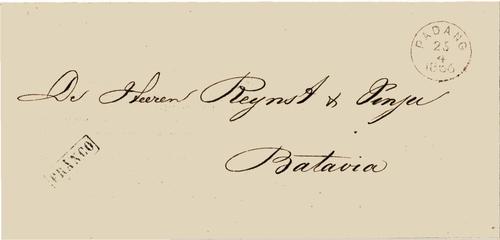 PADANG
25
4
1866
De Heeren Reynst & Vinju
Batavia
FRANCO